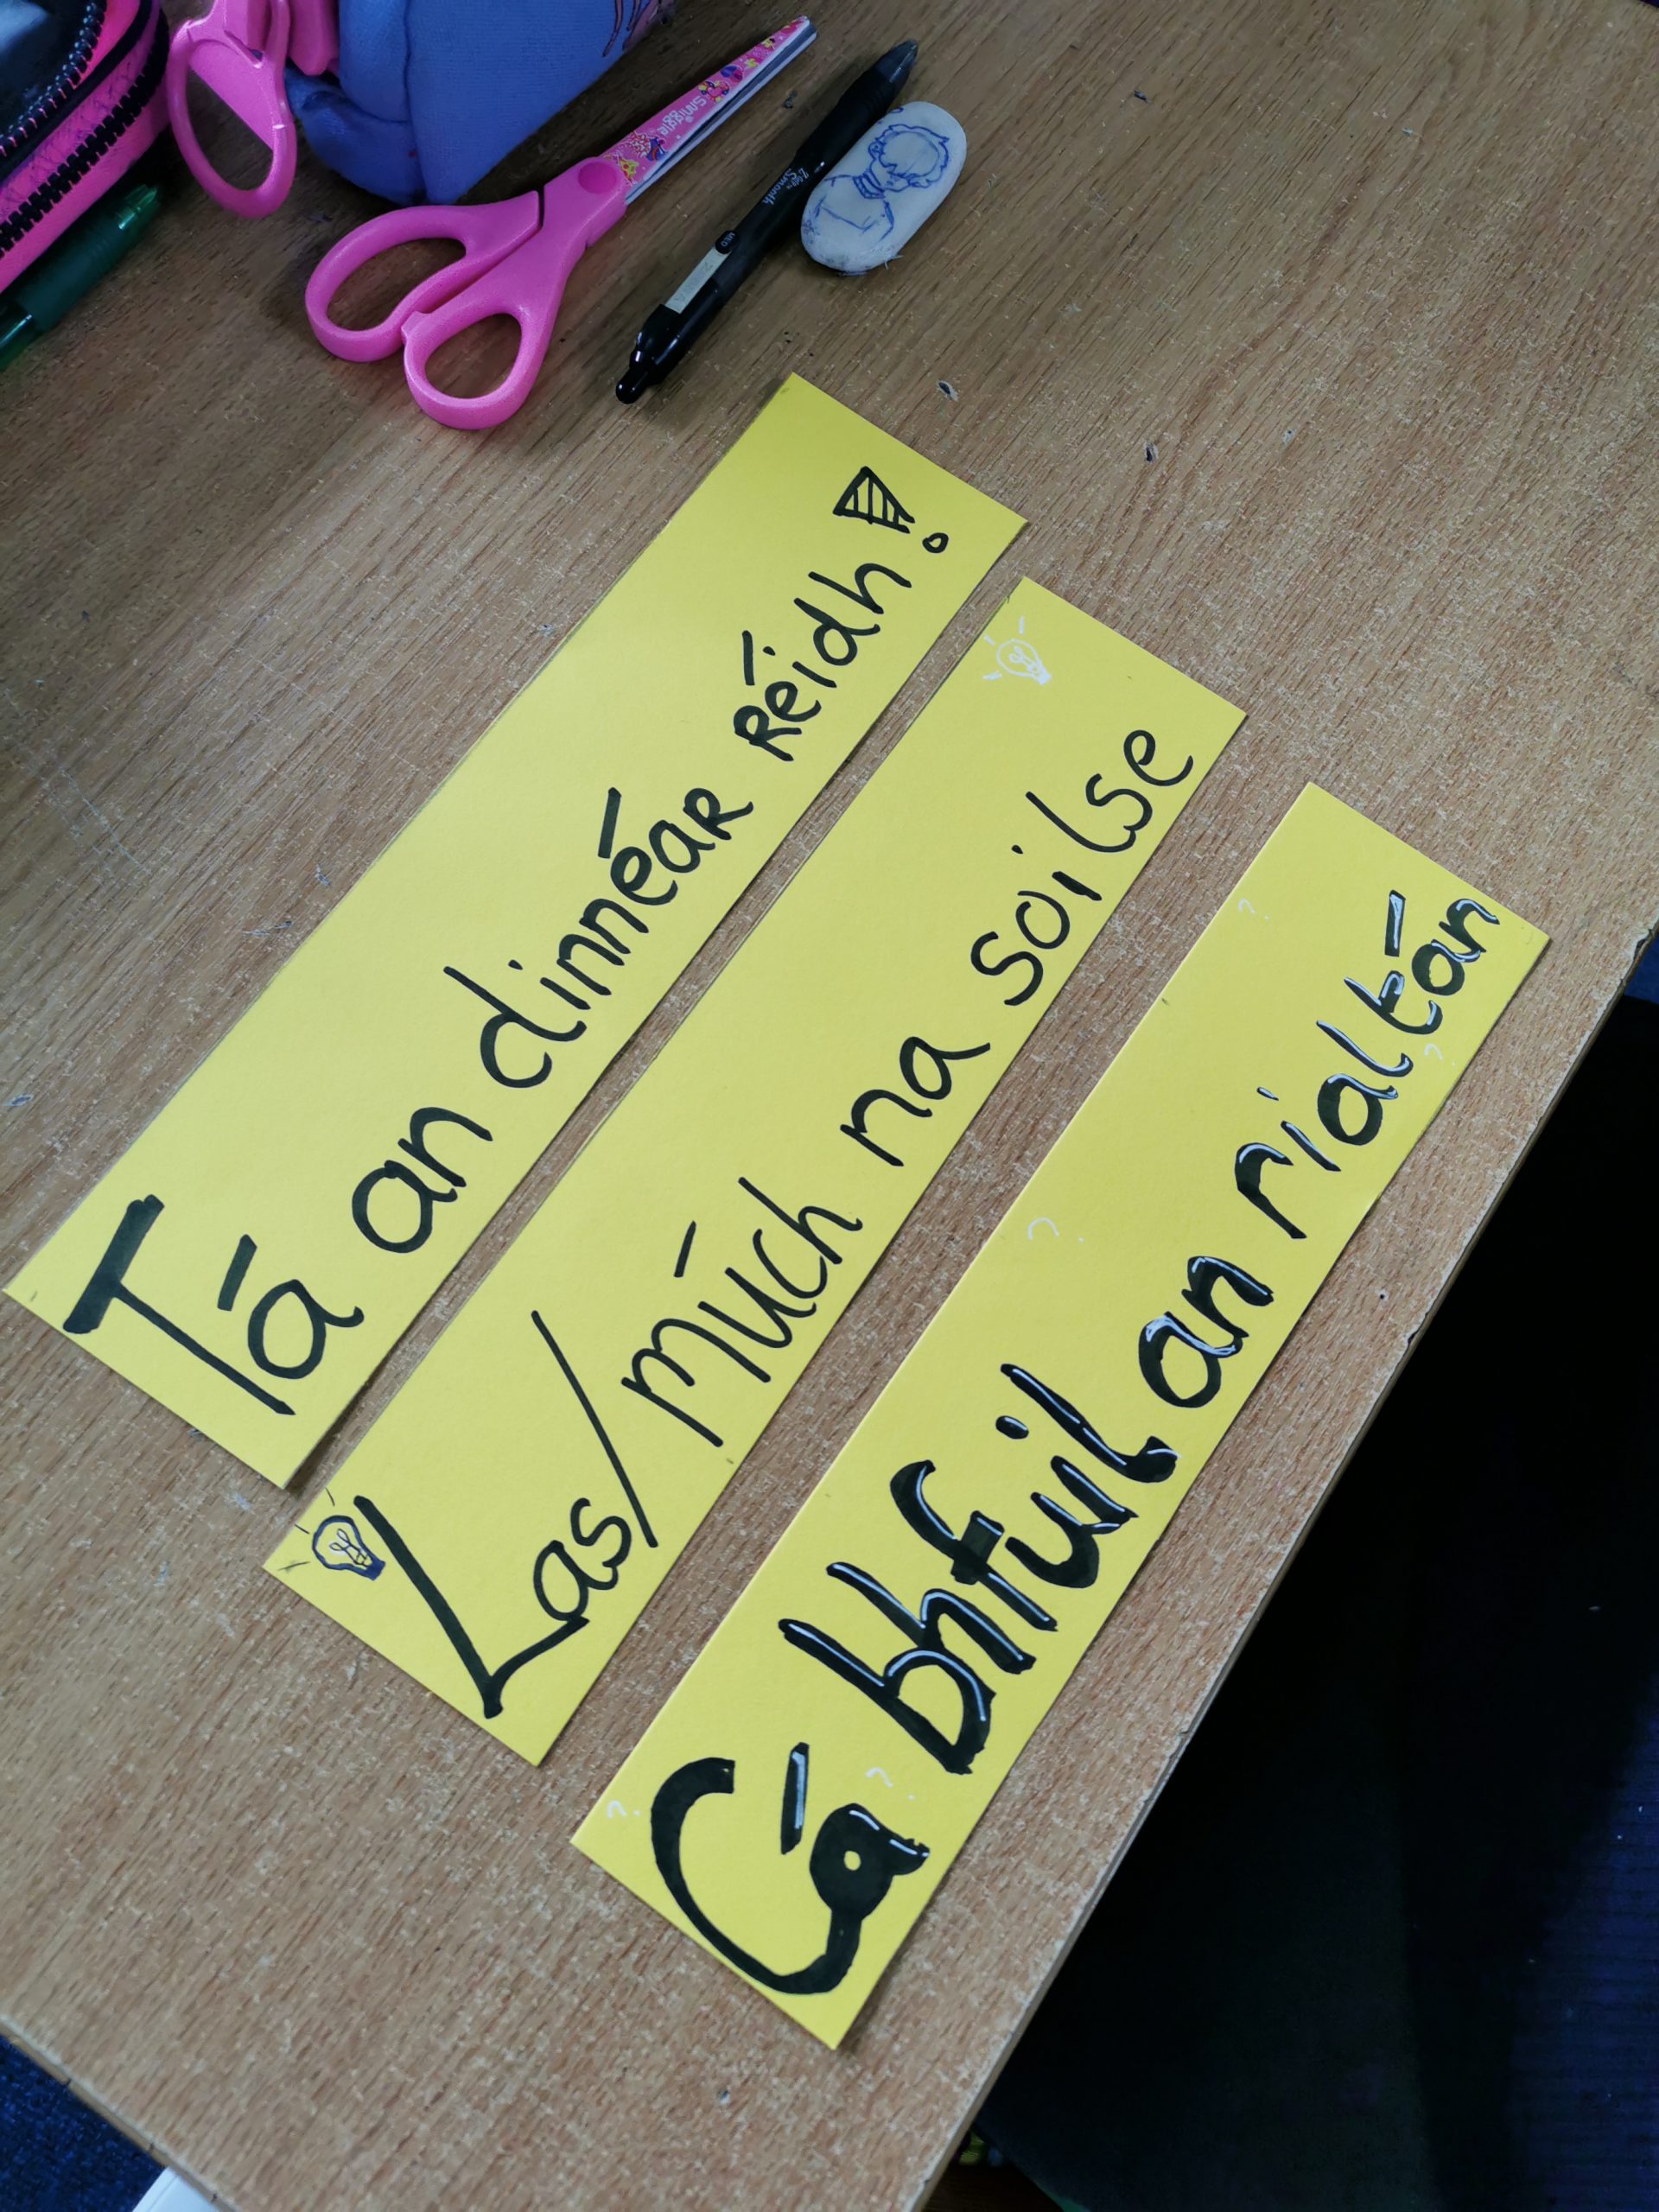 Tá an dinnéar réidh!
Las/múch na soilse
Cá bhfuil an rialtán
smiggle
Z Grip Smooth